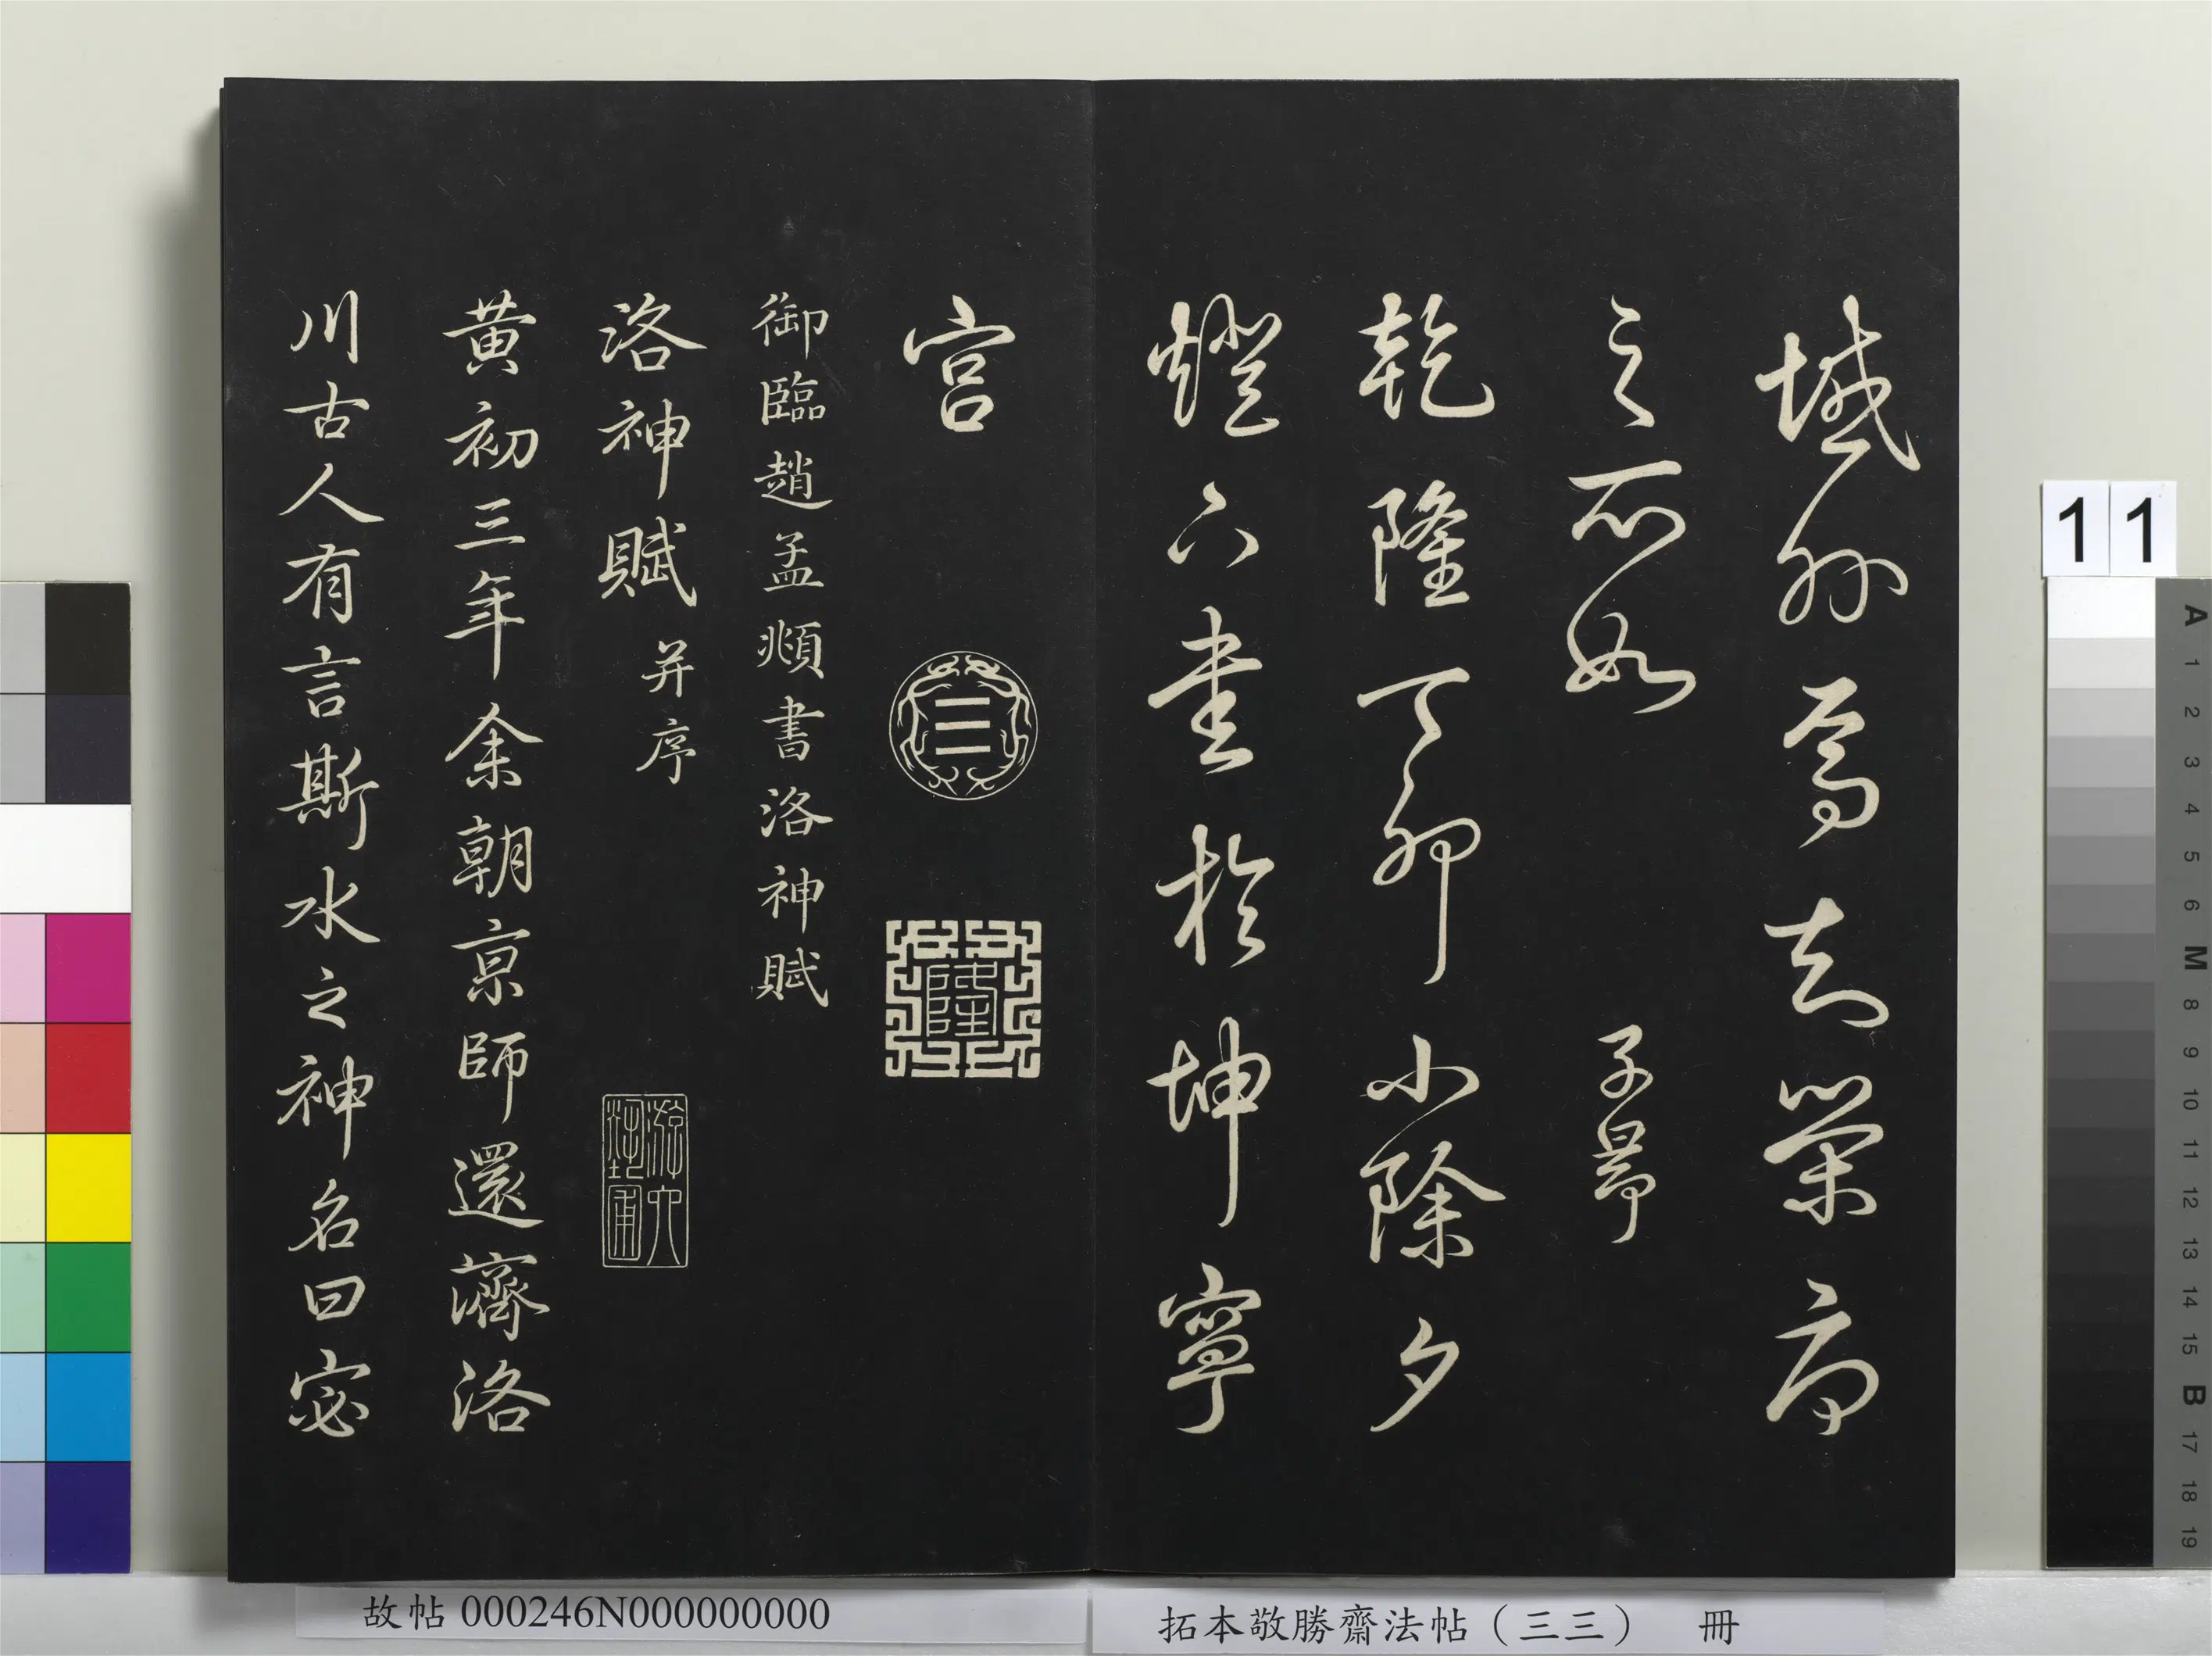 域外焉知榮辱
之所如 子昂
乾隆丁卯小除夕
燈下書於坤寧
宮
隆
御臨趙孟頫書洛神賦
洛神賦并序
黃初三年余朝京師還濟洛
川古人有言斯水之神名曰宓
故帖 000246N000000000
拓本敬勝齋法帖（三三） 冊
11
A 1 2 3 4 5 6 M 8 9 10 11 12 13 14 15 B 17 18 19